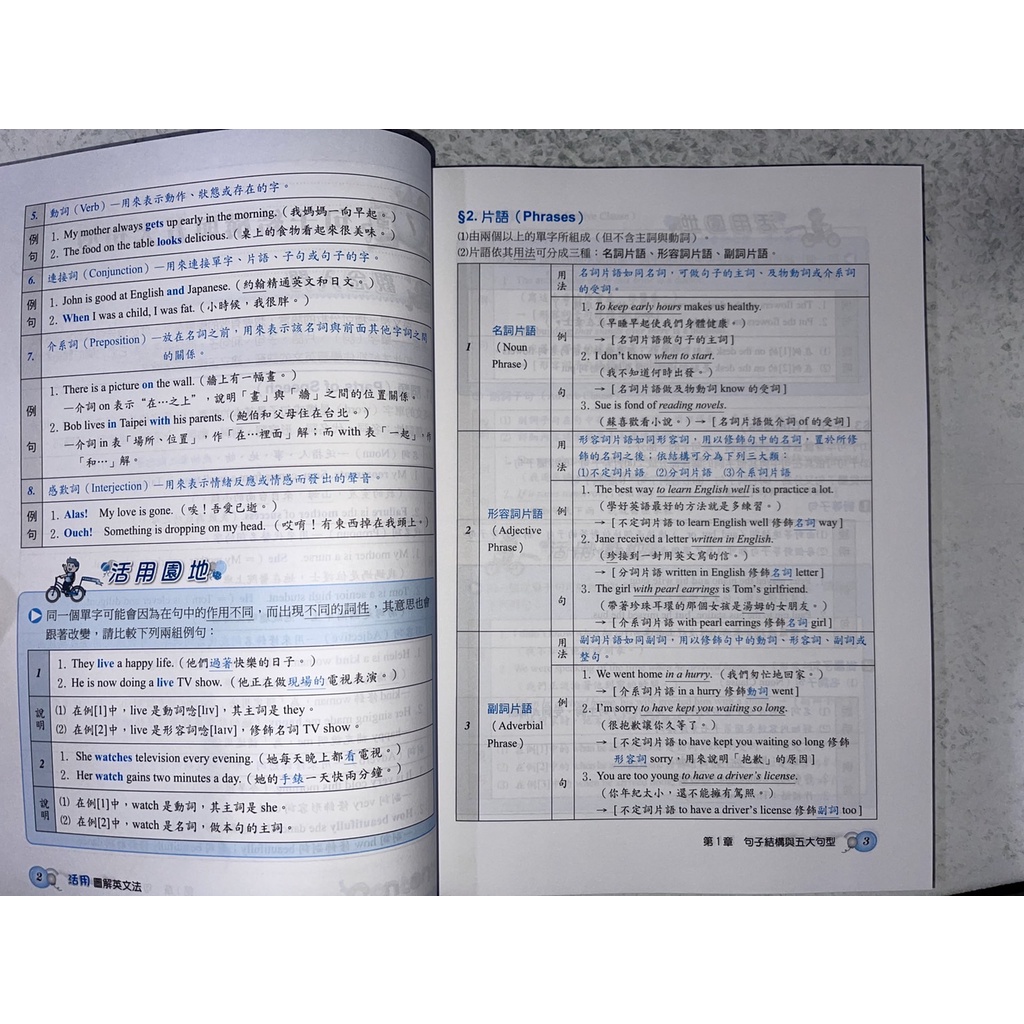 5. 動詞（Verb）—用來表示動作、狀態或存在的字。
例句
1. My mother always gets up early in the morning.（我媽媽一向早起。）
2. The food on the table looks delicious.（桌上的食物看起來很美味。）
6. 連接詞（Conjunction）—用來連接單字、片語、子句或句子的字。
例句
1. John is good at English and Japanese.（約翰精通英文和日文。）
2. When I was a child, I was fat.（小時候，我很胖。）
7. 介系詞（Preposition）—放在名詞之前，用來表示該名詞與前面其他字詞之間
的關係。
例句
1. There is a picture on the wall.（牆上有一幅畫。）
—介詞 on 表示“在…之上”，說明「畫」與「牆」之間的位置關係。
2. Bob lives in Taipei with his parents.（鮑伯和父母住在台北。）
—介詞 in 表「場所、位置」，作「在…裡面」解；而 with 表「一起」，作
「和…」解。
8. 感歎詞（Interjection）—用來表示情緒反應或情感而發出的聲音。
例句
1. Alas! My love is gone.（唉！吾愛已逝。）
2. Ouch! Something is dropping on my head.（哎唷！有東西掉在我頭上。）
活用園地
同一個單字可能會因為在句中的作用不同，而出現不同的詞性，其意思也會
跟著改變，請比較下列兩組例句：
1
1. They live a happy life.（他們過著快樂的日子。）
2. He is now doing a live TV show.（他正在做現場的電視表演。）
說明
⑴ 在例[1]中，live 是動詞唸[lɪv]，其主詞是 they。
⑵ 在例[2]中，live 是形容詞唸[laɪv]，修飾名詞 TV show。
2
1. She watches television every evening.（她每天晚上都看電視。）
2. Her watch gains two minutes a day.（她的手錶一天快兩分鐘。）
說明
⑴ 在例[1]中，watch 是動詞，其主詞是 she。
⑵ 在例[2]中，watch 是名詞，做本句的主詞。
2 活用圖解英文法
§2. 片語（Phrases）
⑴由兩個以上的單字所組成（但不含主詞與動詞）。
⑵片語依其用法可分成三種：名詞片語、形容詞片語、副詞片語。
1
名詞片語
（Noun
Phrase）
用法
名詞片語如同名詞，可做句子的主詞、及物動詞或介系詞
的受詞。
例句
1. To keep early hours makes us healthy.
（早睡早起使我們身體健康。）
→［名詞片語做句子的主詞］
2. I don't know when to start.
（我不知道何時出發。）
→［名詞片語做及物動詞 know 的受詞］
3. Sue is fond of reading novels.
（蘇喜歡看小說。）→［名詞片語做介詞 of 的受詞］
2
形容詞片語
（Adjective
Phrase）
用法
形容詞片語如同形容詞，用以修飾句中的名詞，置於所修
飾的名詞之後；依結構可分為下列三大類：
⑴不定詞片語 ⑵分詞片語 ⑶介系詞片語
例句
1. The best way to learn English well is to practice a lot.
（學好英語最好的方法就是多練習。）
→［不定詞片語 to learn English well 修飾名詞 way］
2. Jane received a letter written in English.
（珍接到一封用英文寫的信。）
→［分詞片語 written in English 修飾名詞 letter］
3. The girl with pearl earrings is Tom's girlfriend.
（帶著珍珠耳環的那個女孩是湯姆的女朋友。）
→［介系詞片語 with pearl earrings 修飾名詞 girl］
3
副詞片語
（Adverbial
Phrase）
用法
副詞片語如同副詞，用以修飾句中的動詞、形容詞、副詞或
整句。
例句
1. We went home in a hurry.（我們匆忙地回家。）
→［介系詞片語 in a hurry 修飾動詞 went］
2. I'm sorry to have kept you waiting so long.
（很抱歉讓你久等了。）
→［不定詞片語 to have kept you waiting so long 修飾
形容詞 sorry，用來說明「抱歉」的原因］
3. You are too young to have a driver's license.
（你年紀太小，還不能擁有駕照。）
→［不定詞片語 to have a driver's license 修飾副詞 too］
第 1 章 句子結構與五大句型 3